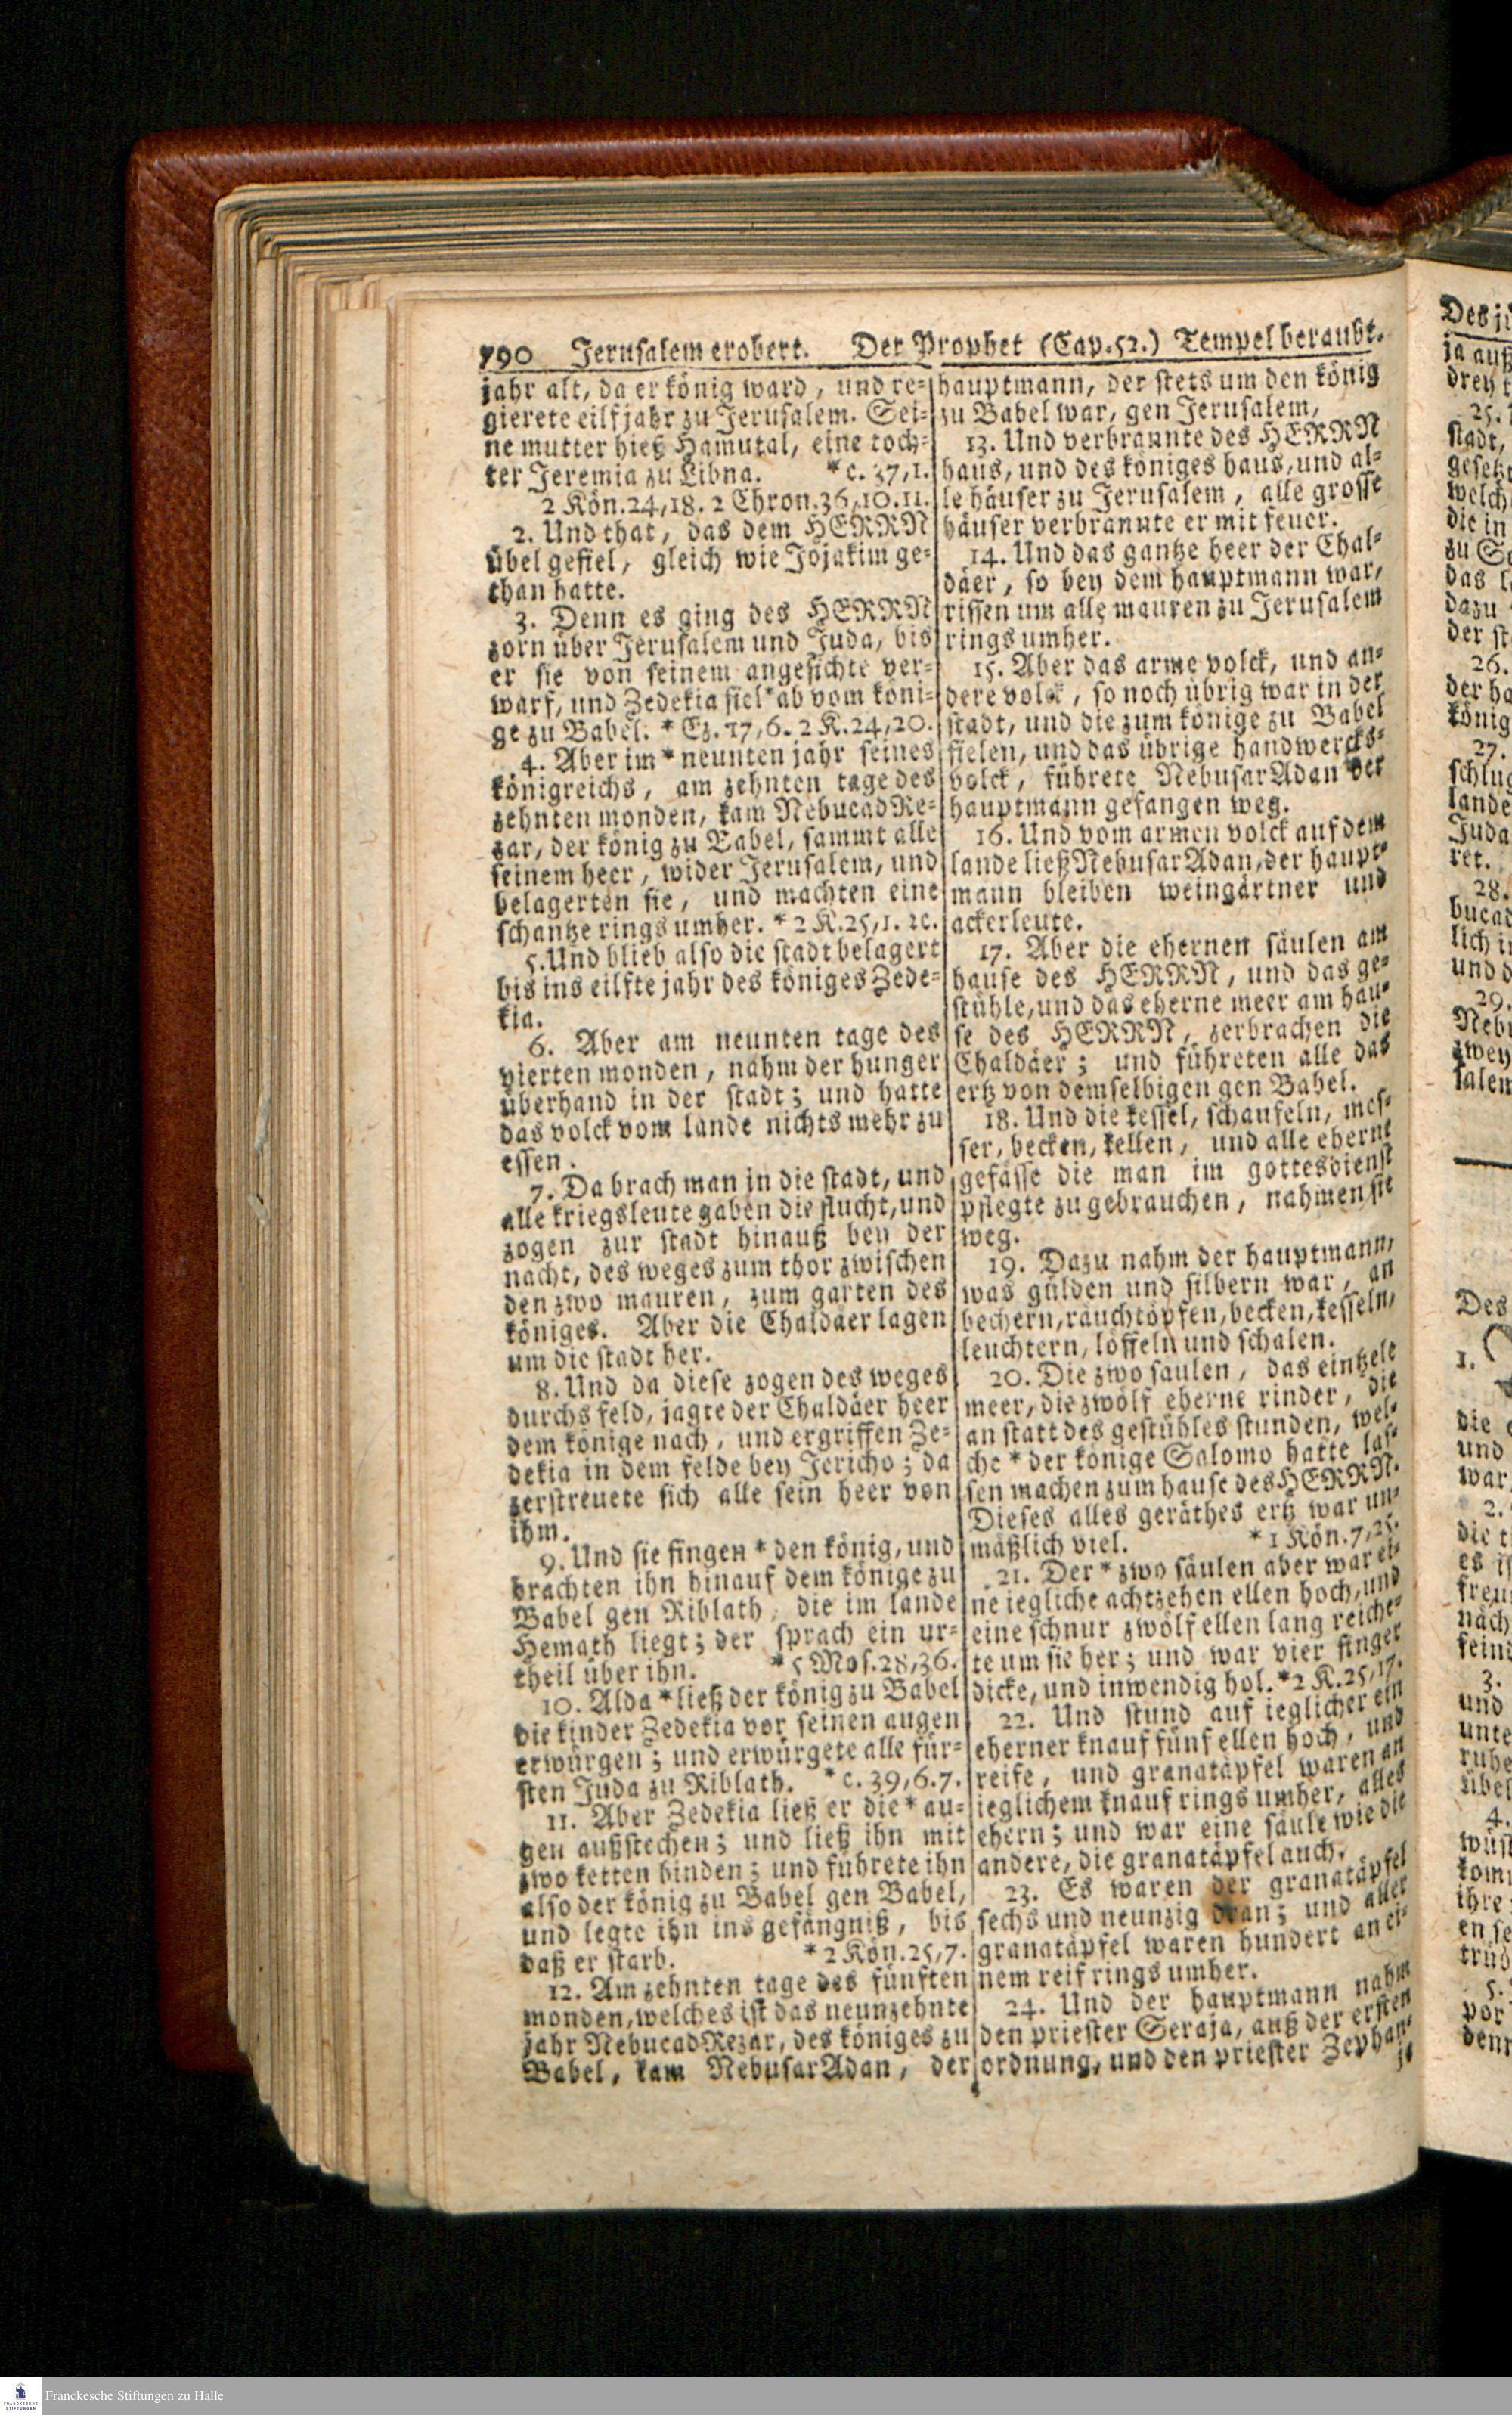 790 Jerusalem erobert. Der Prophet (Cap. 52.) Tempel beraubt.
jahr alt, da er könig ward, und re-
gierete eilf jahr zu Jerusalem. Sei-
ne mutter hieß Hamutal, eine toch-
ter Jeremia zu Libna. *c. 37,1.
2 Kön. 24,18. 2 Chron. 36,10.11.
2. Und that, das dem HERRN
übel gefiel, gleich wie Jojakim ge-
than hatte.
3. Denn es ging des HERRN
zorn über Jerusalem und Juda, bis
er sie von seinem angesichte ver-
warf, und Zedekia fiel *ab vom köni-
ge zu Babel. * Ez. 17,6. 2 K. 24,20.
4. Aber im * neunten jahr seines
königreichs, am zehnten tage des
zehnten monden, kam NebucadRe-
zar, der könig zu Babel, sammt alle
seinem heer, wider Jerusalem, und
belagerten sie, und machten eine
schantze rings umher. * 2 K. 25,1. 2c.
5. Und blieb also die stadt belagert
bis ins eilfte jahr des königes Zede-
kia.
6. Aber am neunten tage des
vierten monden, nahm der hunger
überhand in der stadt; und hatte
das volck vom lande nichts mehr zu
essen.
7. Da brach man in die stadt, und
alle kriegsleute gaben die flucht, und
zogen zur stadt hinauß bey der
nacht, des weges zum thor zwischen
den zwo mauren, zum garten des
königes. Aber die Chaldäer lagen
um die stadt her.
8. Und da diese zogen des weges
durchs feld, jagte der Chaldäer heer
dem könige nach, und ergriffen Ze-
dekia in dem felde bey Jericho; da
zerstreuete sich alle sein heer von
ihm.
9. Und sie fingen * den könig, und
brachten ihn hinauf dem könige zu
Babel gen Riblath, die im lande
Hemath liegt; der sprach ein ur-
theil über ihn. * 5 Mos. 28,36.
10. Alda * ließ der könig zu Babel
die kinder Zedekia vor seinen augen
erwürgen; und erwürgete alle für-
sten Juda zu Riblath. * c. 39,6.7.
11. Aber Zedekia ließ er die * au-
gen außstechen; und ließ ihn mit
zwo ketten binden; und führete ihn
also der könig zu Babel gen Babel,
und legte ihn ins gefängniß, bis
daß er starb. * 2 Kön. 25,7.
12. Am zehnten tage des fünften
monden, welches ist das neunzehnte
jahr NebucadRezar, des königes zu
Babel, kam NebusarAdan, der
hauptmann, der stets um den könig
zu Babel war, gen Jerusalem,
13. Und verbrannte des HERRN
haus, und des königes haus, und al-
le häuser zu Jerusalem, alle grosse
häuser verbrannte er mit feuer.
14. Und das gantze heer der Chal-
däer, so bey dem hauptmann war,
rissen um alle mauren zu Jerusalem
rings umher.
15. Aber das arme volck, und an-
dere volck, so noch übrig war in der
stadt, und die zum könige zu Babel
fielen, und das übrige handwercks-
volck, führete NebusarAdan der
hauptmann gefangen weg.
16. Und vom armen volck auf dem
lande ließ NebusarAdan, der haupt-
mann bleiben weingärtner und
ackerleute.
17. Aber die ehernen säulen am
hause des HERRN, und das ge-
stühle, und das eherne meer am hau-
se des HERRN, zerbrachen die
Chaldäer; und führeten alle das
ertz von demselbigen gen Babel.
18. Und die kessel, schaufeln, mes-
ser, becken, kellen, und alle eherne
gefässe die man im gottesdienst
pflegte zu gebrauchen, nahmen sie
weg.
19. Dazu nahm der hauptmann,
was gülden und silbern war, an
bechern, räuchtöpfen, becken, kesseln,
leuchtern, löffeln und schalen.
20. Die zwo säulen, das eintzele
meer, die zwölf eherne rinder, die
an statt des gestühles stunden, wel-
che * der könige Salomo hatte las-
sen machen zum hause des HERRN.
Dieses alles geräthes ertz war un-
mäßlich viel. * 1 Kön. 7,25.
21. Der * zwo säulen aber war ei-
ne iegliche achtzehen ellen hoch, und
eine schnur zwölf ellen lang reiche-
te um sie her; und war vier finger
dicke, und inwendig hol. * 2 K. 25,17.
22. Und stund auf ieglicher ein
eherner knauf fünf ellen hoch, und
reife, und granatäpfel waren an
ieglichem knauf rings umher, alles
ehern; und war eine säule wie die
andere, die granatäpfel auch.
23. Es waren der granatäpfel
sechs und neunzig dran; und aller
granatäpfel waren hundert an ei-
nem reif rings umher.
24. Und der hauptmann nahm
den priester Seraja, auß der ersten
ordnung, und den priester Zephan-
ja
Franckesche Stiftungen zu Halle